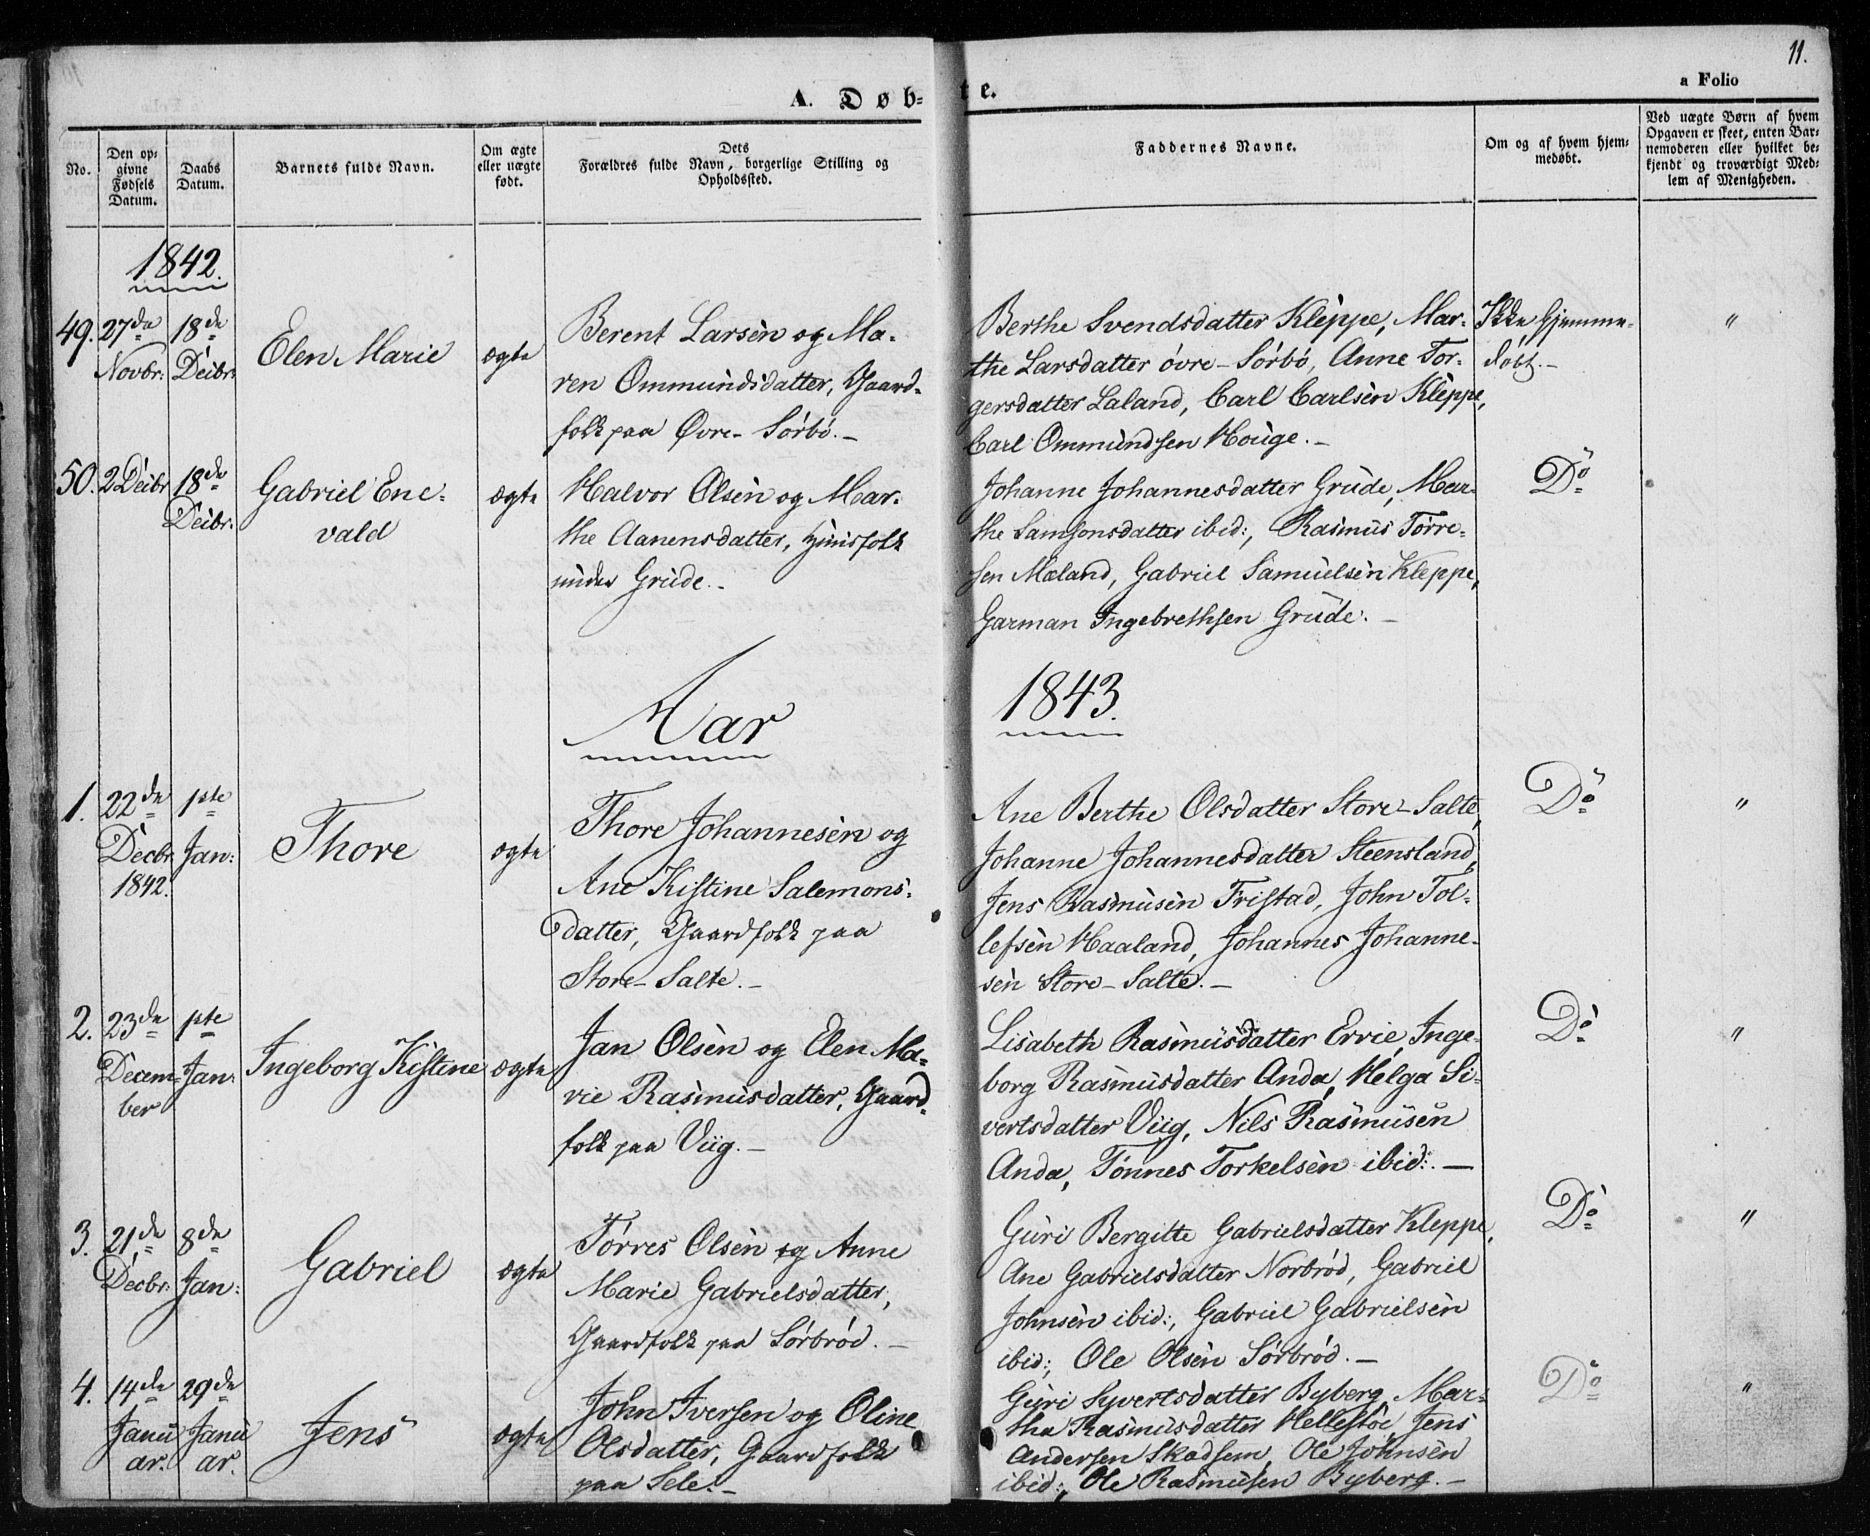 11.
A. Døb-te.
a Folio
No.
Den op-
givne
Fødsels
Datum.
Daabs
Datum.
Barnets fulde Navn.
Om ægte
eller uægte
født.
Dets
Forældres fulde Navn, borgerlige Stilling og
Opholdssted.
Faddernes Navne.
Om og af hvem hjem-
medøbt.
Ved uægte Børn af hvem
Opgaven er skeet, enten Bar-
nemoderen eller hvilket be-
kjendt og troværdigt Med-
lem af Menigheden.
1842.
49.
27de
Novbr:
18de
Decbr:
Elen Marie
ægte
Berent Larsen og Ma-
ren Ommundsdatter, Gaard-
folk paa Øvre-Sörbö.-
Berthe Svendsdatter Kleppe, Mar-
the Larsdatter övre-Sörbö, Anne Tor-
gersdatter Laland, Carl Carlsen Kleppe,
Carl Ommundsen Houge.-
Ikke hjemme-
døbt.-
"
50.
2 Decbr
18de
Decbr:
Gabriel Ene-
vald
ægte
Halvor Olsen og Mar-
the Aanensdatter, Huusfolk
under Grude.-
Johanne Johannesdatter Grude, Mar-
the Samsonsdatter ibid:, Rasmus Törre-
sen Mæland, Gabriel Samuelsen Kleppe,
Garman Ingebrethsen Grude.-
Do
Aar
1843.
1.
22de
Decbr
1842.
1ste
Jan:
Thore
ægte
Thore Johannesen og
Ane Kistine Salemons-
datter, Gaardfolk paa
Store-Salte.-
Ane Berthe Olsdatter Store-Salte,
Johanne Johannesdatter Steensland,
Jens Rasmusen Fristad, John Tol-
lefsen Haaland, Johannes Johanne-
sen Store-Salte.-
Do
"
2.
23de
Decem-
ber
1ste
Jan:
Ingeborg Kistine
ægte
Jan Olsen og Elen Ma-
rie Rasmusdatter, Gaard-
folk paa Viig.-
Lisabeth Rasmusdatter Ervie, Inge-
borg Rasmusdatter Anda, Helga Si-
vertsdatter Viig, Nils Rasmusen
Anda, Tönnes Torkelsen ibid:.-
Do
"
3.
21de
Decbr:
8de
Jan:
Gabriel
ægte
Törres Olsen og Anne
Marie Gabrielsdatter,
Gaardfolk paa Sörbröd.-
Guri Bergitte Gabrielsdatter Kleppe,
Ane Gabrielsdatter Norbröd, Gabriel
Johnsen ibid:, Gabriel Gabrielsen
ibid:, Ole Olsen Sörbröd.-
Do
"
4.
14de
Janu
ar.
29de
Janu
ar.
Jens
ægte
John Iversen og Oline
Olsdatter, Gaardfolk
paa Sele.-
Guri Syvertsdatter Byberg, Mar-
tha Rasmusdatter Hellestöe, Jens
Andersen Skadsem, Ole Johnsen
ibid:, Ole Rasmusen Byberg.-
Do
"